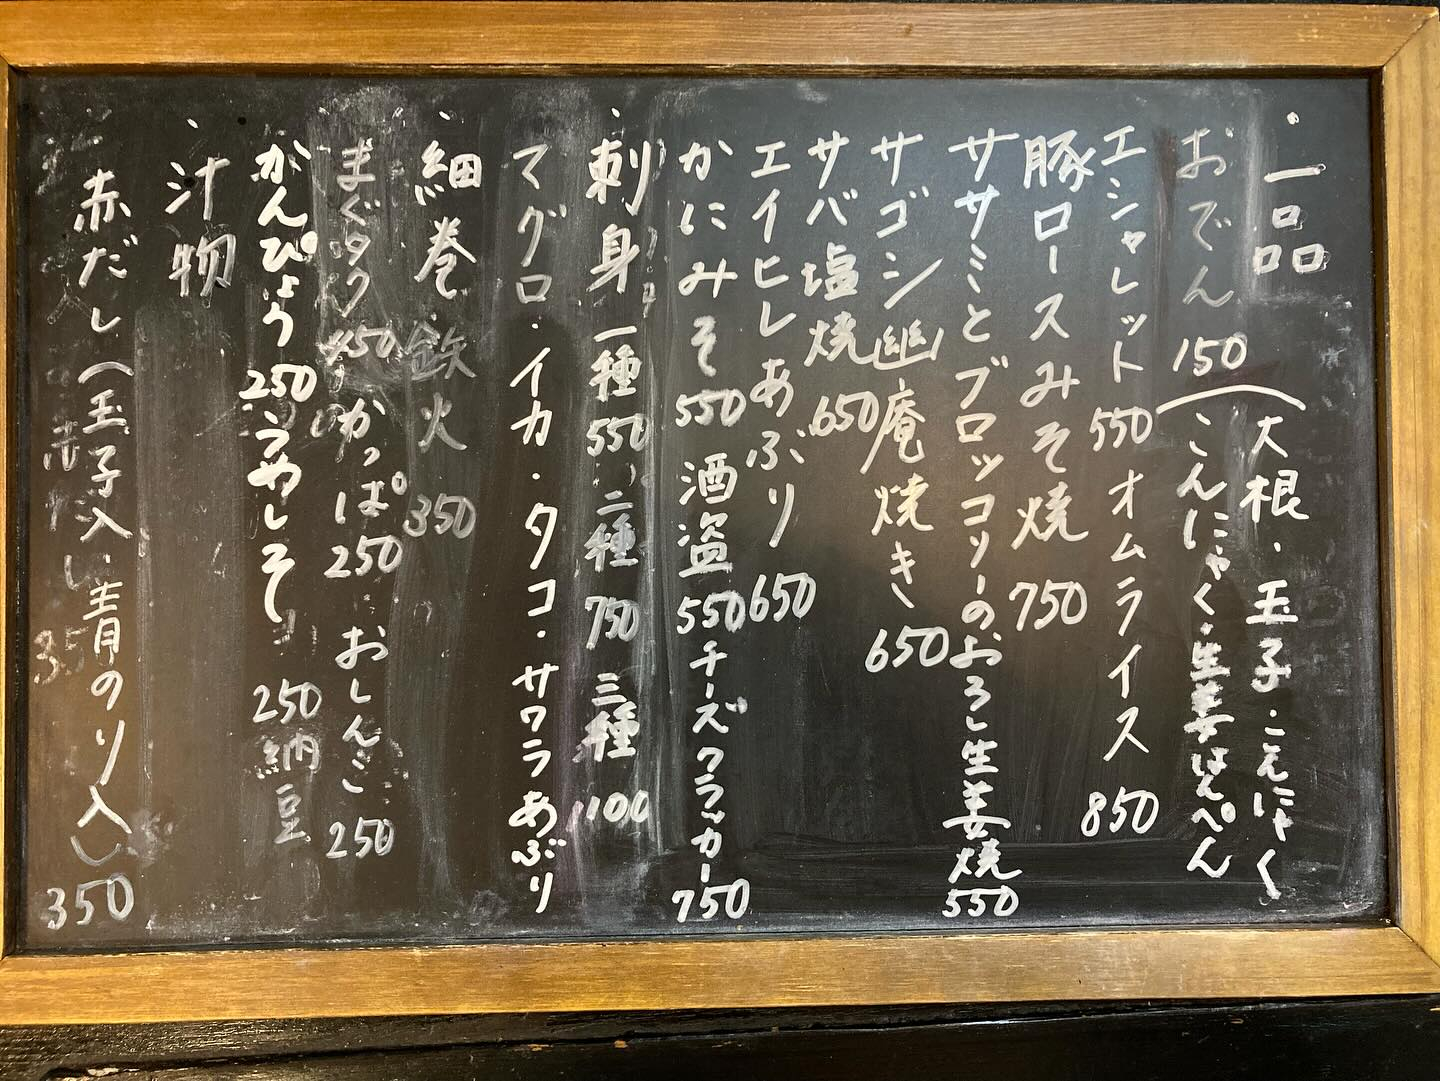 ・一品
おでん 150(大根・玉子・こんにゃく
こんにゃく・生姜はんぺん
エシャレット 550 オムライス 850
豚ロースみそ焼 750
ササミとブロッコリーのおろし生姜焼 550
サゴシ幽庵焼き 650
サバ塩焼 650
エイヒレあぶり 650
かにみそ 550 酒盗 550 チーズクラッカー 750
・刺身 一種 550 二種 750 三種 1100
マグロ・イカ・タコ・サワラあぶり
・細巻 鉄火 350
まぐタク 450 かっぱ 250 おしんこ 250
かんぴょう 250 うめしそ 250 納豆
・汁物
赤だし(玉子入・青のり入) 350